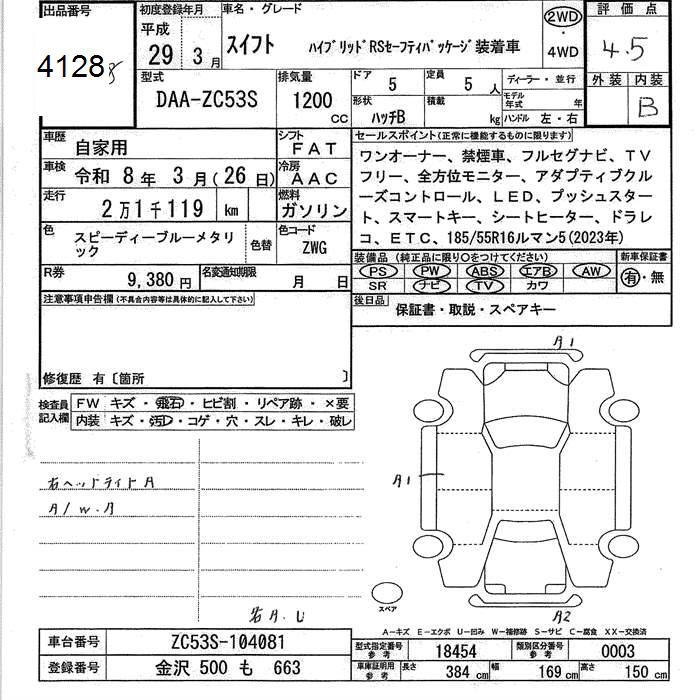 出品番号
4128
初度登録年月
平成
29 年 3 月
車名・グレード
スイフト ハイブリッドRSセーフティパッケージ装着車
2WD
・
4WD
評価点
4.5
外装 内装
B
型式
DAA-ZC53S
排気量
1200 CC
ドア 5
定員 5 人
形状 ハッチB
積載 kg
ディーラー・並行
モデル年式 年
ハンドル 左・右
車歴 自家用
シフト FAT
車検 令和 8 年 3 月(26 日)
冷房 AAC
走行 2万1千119 km
燃料 ガソリン
色 スピーディーブルーメタリック
色替
色コード ZWG
R券 9,380 円
名変通知期限 月 日
セールスポイント(正常に機能するものに限ります)
ワンオーナー、禁煙車、フルセグナビ、TV
フリー、全方位モニター、アダプティブクル
ーズコントロール、LED、プッシュスター
ト、スマートキー、シートヒーター、ドラレ
コ、ETC、185/55R16ルマン5(2023年)
装備品(純正品に限り○をつけてください)
PS PW ABS エアB AW
SR ナビ TV カワ
新車保証書
有・無
後日品 保証書・取説・スペアキー
注意事項申告欄(不具合内容等は具体的に記入して下さい)
修復歴 有〔箇所 〕
検査員記入欄
FW キズ・飛石・ヒビ割・リペア跡・×要
内装 キズ・汚れ・コゲ・穴・スレ・キレ・破レ
右ヘットライトA
A/W.A
A1
A1
A2
スペア
A−キズ E−エクボ U−凹み W−補修跡 S−サビ C−腐食 XX−交換済
車台番号 ZC53S-104081
登録番号 金沢 500 も 663
型式指定番号 参考 18454
類別区分番号 参考 0003
車庫証明用 参考 長さ 384 cm 幅 169 cm 高さ 150 cm